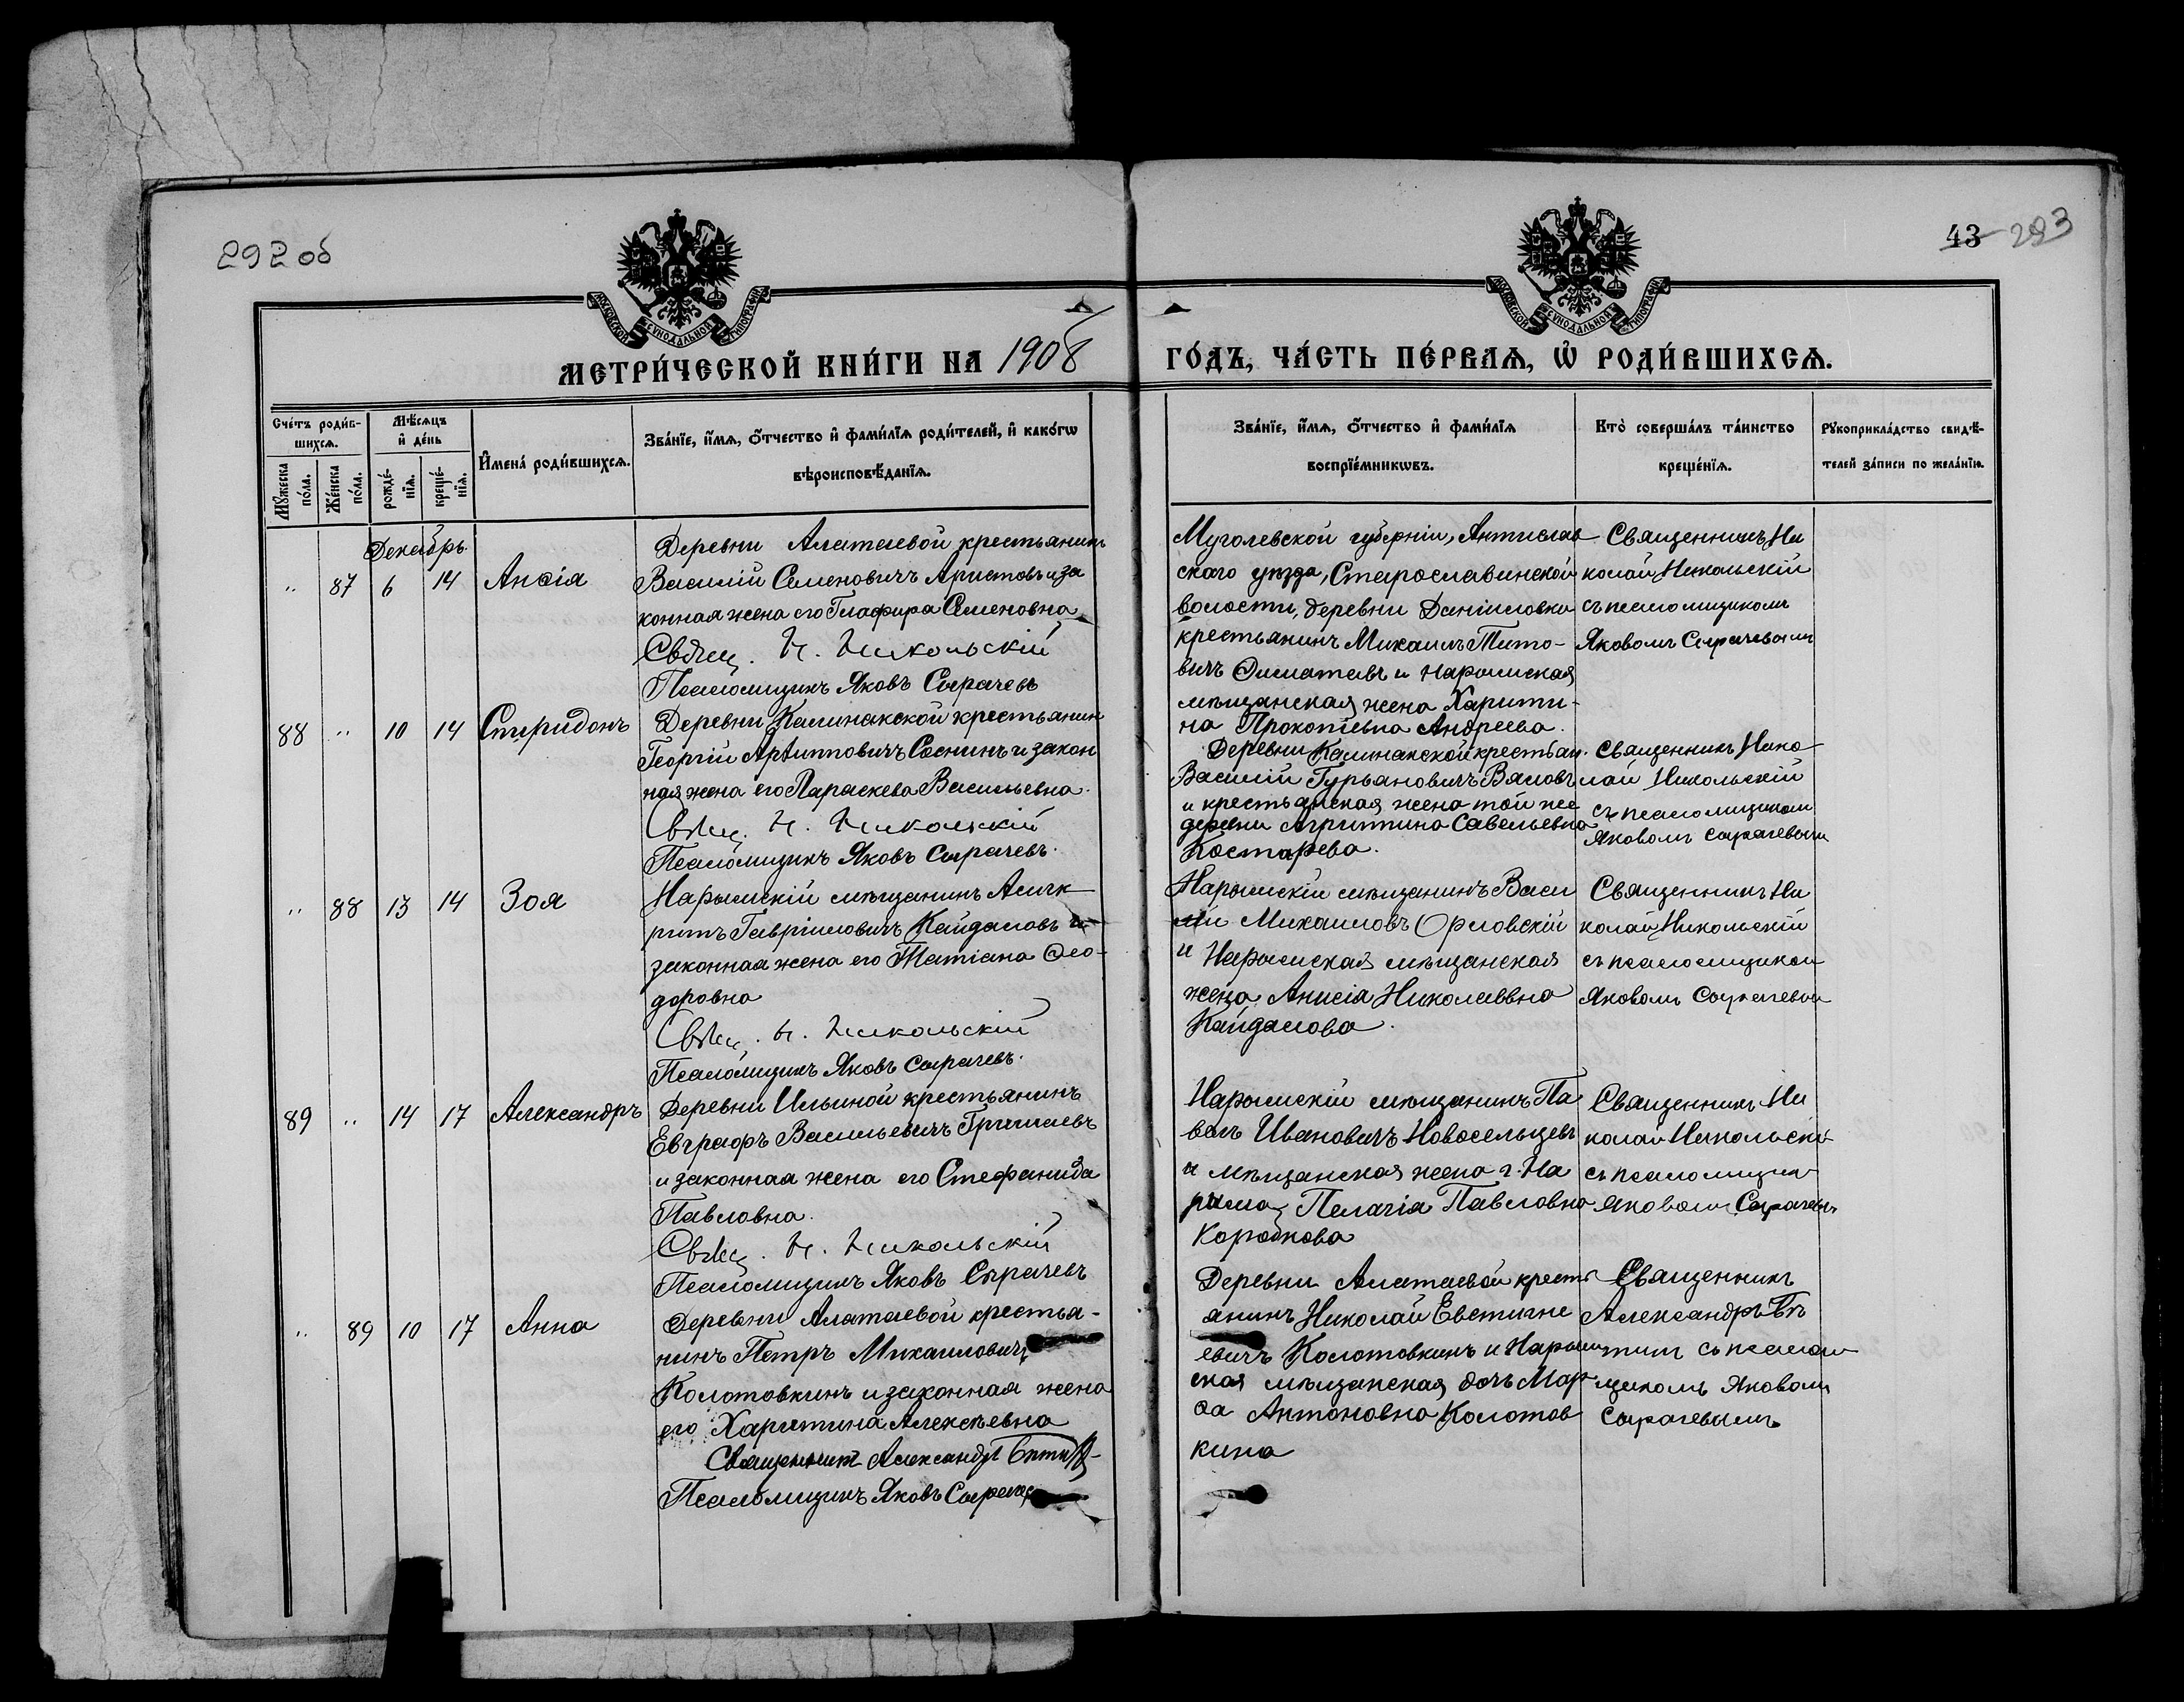 292 об
43 293
МОСКОВСКОЙ СѴНОДАЛЬНОЙ ТИПОГРАФІИ
МОСКОВСКОЙ СѴНОДАЛЬНОЙ ТИПОГРАФІИ
МЕТРИ́ЧЕСКОЙ КНИ́ГИ НА 1908 ГО́ДЪ, ЧА́СТЬ ПЕ́РВАѦ, Ѡ РОДИ́ВШИХСѦ.
Сче́тъ роди́в-
шихсѧ.
Мѣ́сѧцъ
и҆ де́нь
Мꙋ́жеска
по́ла.
Же́нска
по́ла.
рожде́-
нїѧ.
креще́-
нїѧ.
И҆мена̀ роди́вшихсѧ.
Зва́нїе, и҆́мѧ, ѻ҆́тчество и҆ фами́лїѧ роди́телей, и҆ како́гѡ
вѣроисповѣ́данїѧ.
Зва́нїе, и҆́мѧ, ѻ҆́тчество и҆ фами́лїѧ
воспрїе́мникѡвъ.
Кто̀ соверша́лъ та́инство
креще́нїѧ.
Рꙋкоприкла́дство свидѣ́-
телей за́писи по жела́нїю.
Декабрь.
" 87 6 14 Анѳіа
Деревни Алатаевой крестьянинъ
Василій Семеновичъ Аристовъ и за
конная жена его Глафира Семеновна
Свящ. Н. Никольскій
Псаломщикъ Яковъ Сырачевъ
губерніи,
скаго уезда, Старославинской
волости, деревни Даниловки
крестьянинъ Михаилъ Тито-
вичъ и Нарымская
мѣщанская жена Харити-
на Прокопіевна Андреева.
Священникъ Ни
колай Никольскій
съ псаломщикомъ
Яковомъ Сырачевымъ
88 " 10 14 Спиридонъ
Деревни Калинакской крестьянин
Георгій Архипповичъ Соснинъ и закон
ная жена его Параскева Васильевна.
Свящ. Н. Никольскій
Псаломщикъ Яковъ Сырачевъ.
Деревни Калинакской крестьян.
Василій Гурьяновичъ Вяловъ
и крестьянская жена той же
деревни Агриппина Савельевна
Костарева.
Священникъ Нико
лай Никольскій
съ псаломщиком
Яковомъ Сырачевымъ
" 88 13 14 Зоя
Нарымскій мѣщанинъ Асинк
ритъ Гавріиловичъ Кайдаловъ и
законная жена его Татіана Ѳео-
доровна
Свящ. Н. Никольскій
Псаломщикъ Яковъ Сырачевъ.
Нарымскій мѣщанинъ Васи
лій Михаиловъ Орловскій
и Нарымская мѣщанская
жена Анисія Николаевна
Кайдалова.
Священникъ Ни
колай Никольскій
съ псаломщиком
Яковомъ Сырачевым
89 " 14 17 Александръ
Деревни Ильиной крестьянинъ
Евграфъ Васильевичъ Гришаевъ
и законная жена его Стефанида
Павловна.
Свящ. Н. Никольскій
Псаломщикъ Яковъ Сырачевъ
Нарымскій мѣщанинъ Па
велъ Ивановичъ Новосельцевъ
и мѣщанская жена г. На
рыма Пелагія Павловна
Коробкова
Священникъ Ни
колай Никольскі
съ псаломщик
Яковомъ Сырачевы
" 89 10 17 Анна
Деревни Алатаевой крестья-
нинъ Петръ Михаиловичъ
Колотовкинъ и законная жена
его Харитина Алексѣевна
Священникъ Александръ
Псаломщикъ Яковъ Сырачев
Деревни Алатаевой кресть
янинъ Николай Евстигне
евичъ Колотовкинъ и Нарым
ская мѣщанская дочь Мар
ѳа Антоновна Колотов
кина
Священникъ
Александръ
съ псалом
щикомъ Яковомъ
Сырачевымъ